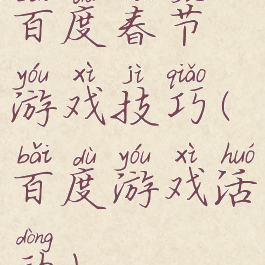 百度春节
yóu xì jì qiǎo
游戏技巧(
bǎi dù yóu xì huó
百度游戏活
dòng